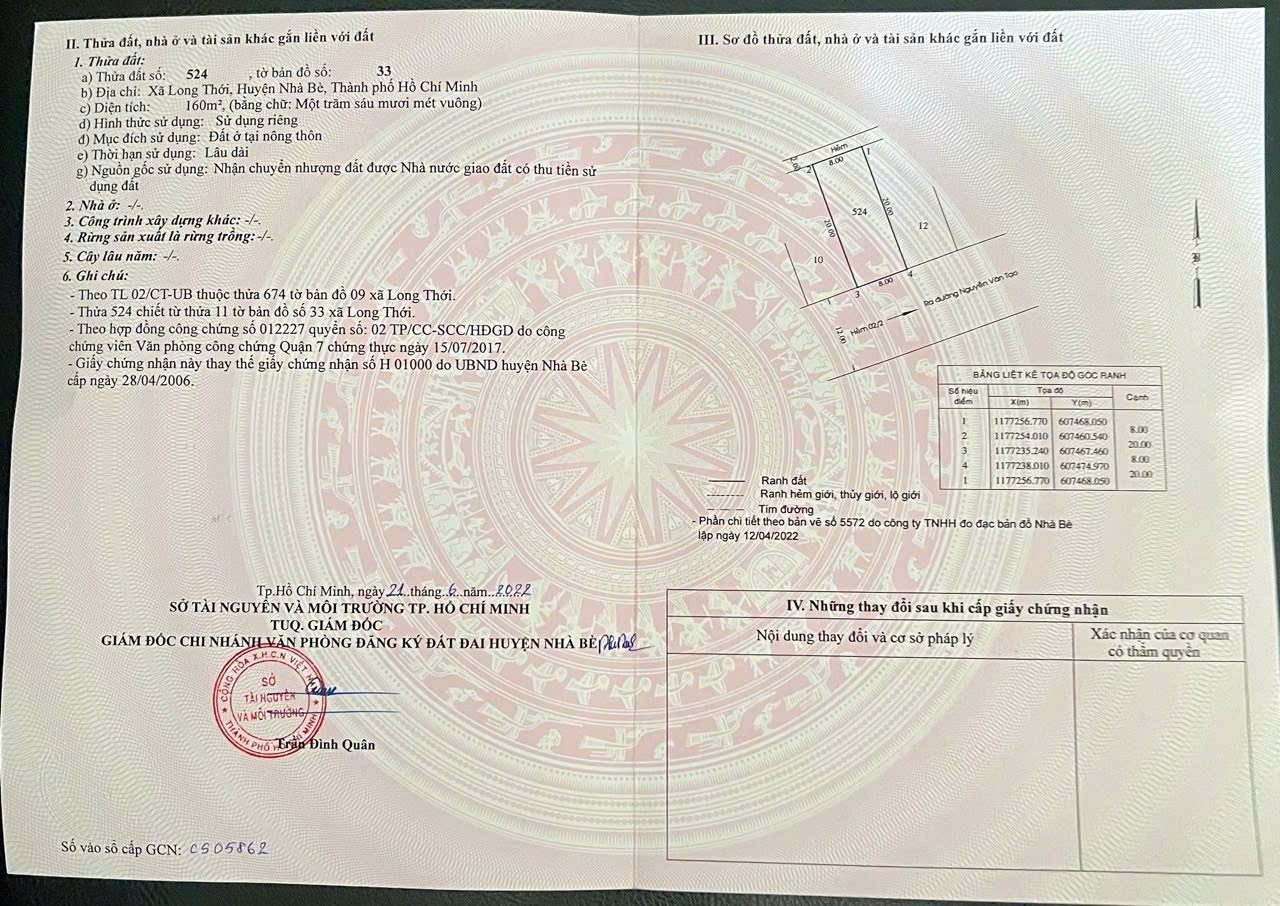 II. Thửa đất, nhà ở và tài sản khác gắn liền với đất
1. Thửa đất:
a) Thửa đất số: 524 , tờ bản đồ số: 33
b) Địa chỉ: Xã Long Thới, Huyện Nhà Bè, Thành phố Hồ Chí Minh
c) Diện tích: 160m², (bằng chữ: Một trăm sáu mươi mét vuông)
d) Hình thức sử dụng: Sử dụng riêng
đ) Mục đích sử dụng: Đất ở tại nông thôn
e) Thời hạn sử dụng: Lâu dài
g) Nguồn gốc sử dụng: Nhận chuyển nhượng đất được Nhà nước giao đất có thu tiền sử
dụng đất
2. Nhà ở: -/-.
3. Công trình xây dựng khác: -/-.
4. Rừng sản xuất là rừng trồng: -/-.
5. Cây lâu năm: -/-.
6. Ghi chú:
- Theo TL 02/CT-UB thuộc thửa 674 tờ bản đồ 09 xã Long Thới.
- Thửa 524 chiết từ thửa 11 tờ bản đồ số 33 xã Long Thới.
- Theo hợp đồng công chứng số 012227 quyển số: 02 TP/CC-SCC/HĐGD do công
chứng viên Văn phòng công chứng Quận 7 chứng thực ngày 15/07/2017.
- Giấy chứng nhận này thay thế giấy chứng nhận số H 01000 do UBND huyện Nhà Bè
cấp ngày 28/04/2006.
Tp.Hồ Chí Minh, ngày 21 tháng 6 năm 2022
SỞ TÀI NGUYÊN VÀ MÔI TRƯỜNG TP. HỒ CHÍ MINH
TUQ. GIÁM ĐỐC
GIÁM ĐỐC CHI NHÁNH VĂN PHÒNG ĐĂNG KÝ ĐẤT ĐAI HUYỆN NHÀ BÈ
CỘNG HÒA X.H.C.N VIỆT NAM
SỞ
TÀI NGUYÊN
VÀ MÔI TRƯỜNG
THÀNH PHỐ HỒ CHÍ MINH
Trần Đình Quân
Số vào sổ cấp GCN: CS05862
III. Sơ đồ thửa đất, nhà ở và tài sản khác gắn liền với đất
Hẻm
2.00
2
8.00
1
524
20.00
20.00
12
10
4
8.00
3
1
Ra đường Nguyễn Văn Tạo
Hẻm 02/2
12.00
B
BẢNG LIỆT KÊ TỌA ĐỘ GÓC RANH
Số hiệu điểm Tọa độ Cạnh
X(m) Y(m)
1 1177256.770 607468.050
8.00
2 1177254.010 607460.540
20.00
3 1177235.240 607467.460
8.00
4 1177238.010 607474.970
20.00
1 1177256.770 607468.050
Ranh đất
Ranh hẻm giới, thủy giới, lộ giới
Tim đường
- Phần chi tiết theo bản vẽ số 5572 do công ty TNHH đo đạc bản đồ Nhà Bè
lập ngày 12/04/2022
IV. Những thay đổi sau khi cấp giấy chứng nhận
Nội dung thay đổi và cơ sở pháp lý
Xác nhận của cơ quan
có thẩm quyền